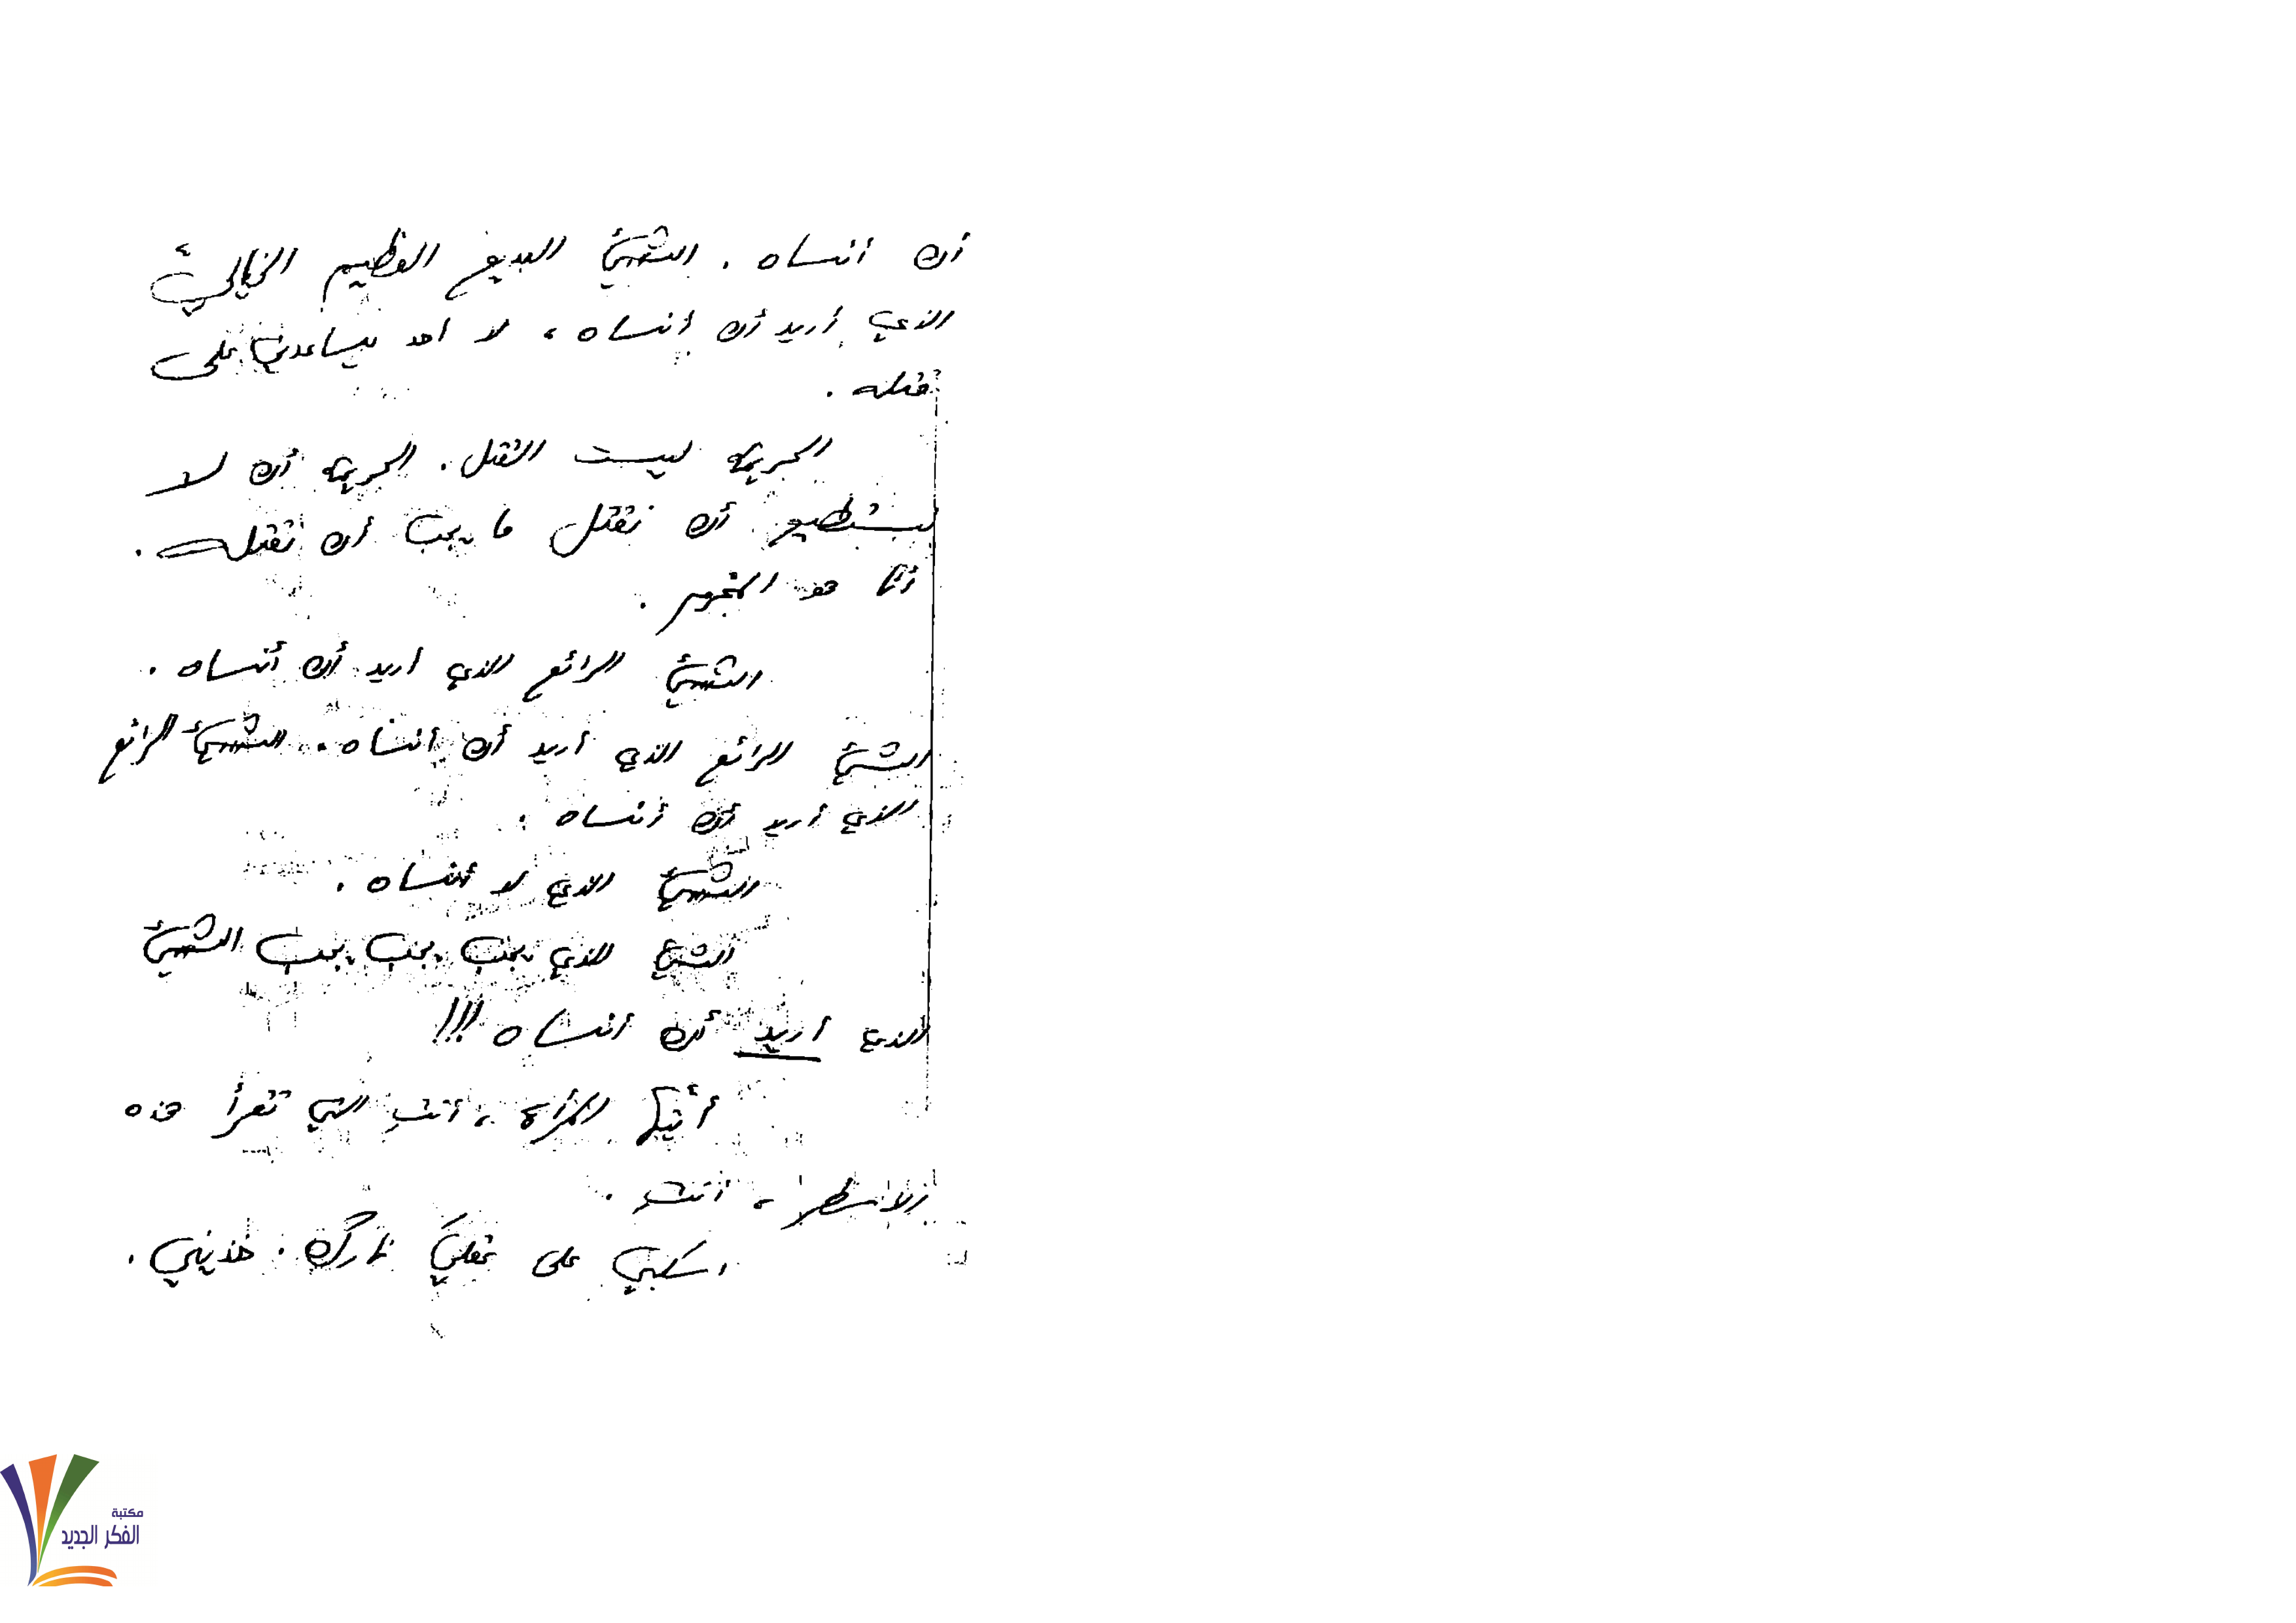 أن أنساه . الشيئ البديع الفظيع الخياليّ
الذي أريد أن أنساه ، لا احد يساعدني على
قتله .
الجريمة ليست القتل . الجريمة أن لا
نستطيع أن نقتل ما يجب أن نقتله .
أنا هو المجرم .
الشيئ الرائع الذي اريد أن أنساه .
الشيئ الرائع الذي أريد أن أنساه . الشيئ الرائع
الذي أريد أن أنساه .
الشيئ الذي لا أنساه .
الشيئ الذي يجب يجب يجب الشيئ
الذي اريد أن أنساه !!!
أيتها المرأة ، أنتِ التي تقرأ هذه
الاسطر ، أنتِ .
اسكبي على عقلي نارك . خذيني .
مكتبة
الفكر الجديد